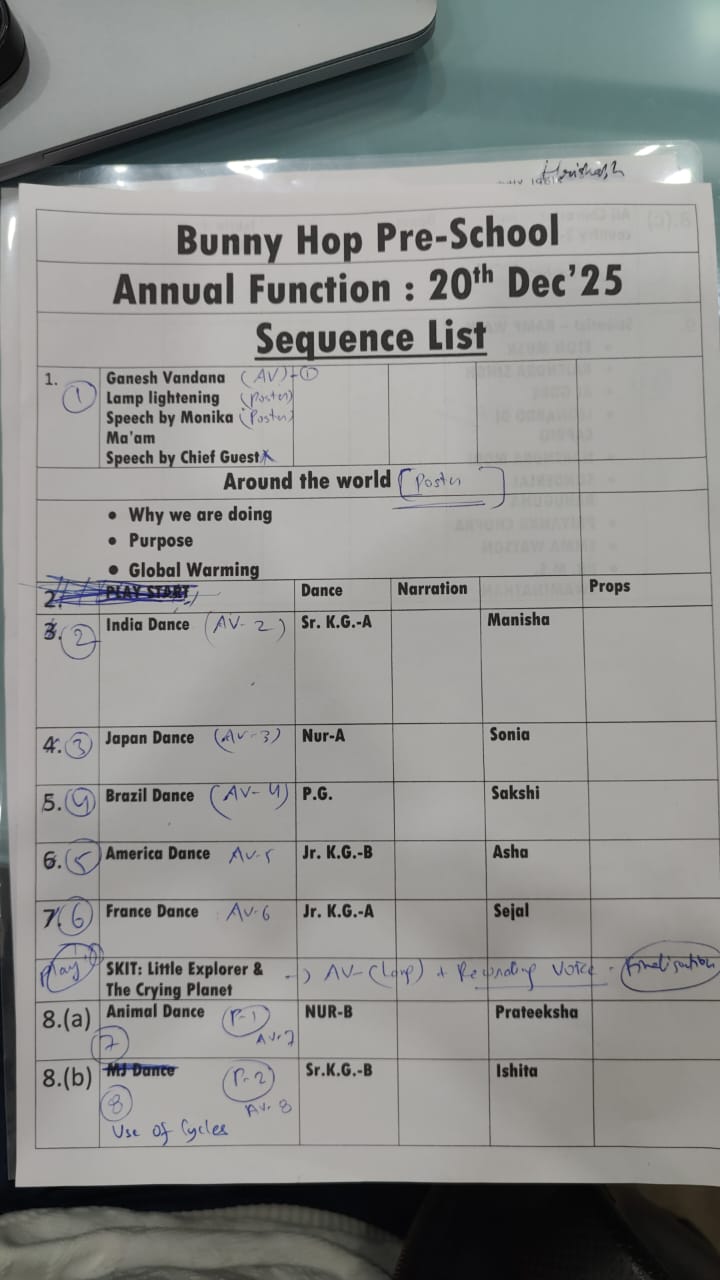 Bunny Hop Pre-School
Annual Function : 20th Dec'25
Sequence List
1. ① Ganesh Vandana (AV)-①
Lamp lightening (Poster)
Speech by Monika (Poster)
Ma'am
Speech by Chief Guest
Around the world [Poster]
• Why we are doing
• Purpose
• Global Warming
2. PLAY START Dance Narration Props
3. ② India Dance (AV-2) Sr. K.G.-A Manisha
4. ③ Japan Dance (AV-3) Nur-A Sonia
5. ④ Brazil Dance (AV-4) P.G. Sakshi
6. ⑤ America Dance AV-5 Jr. K.G.-B Asha
7. ⑥ France Dance AV-6 Jr. K.G.-A Sejal
Play SKIT: Little Explorer & → AV-(Loop) + Recording Voice - Finalisation
The Crying Planet
8.(a) Animal Dance P-1 NUR-B Prateeksha
⑦ AV-7
8.(b) MJ Dance P-2 Sr.K.G.-B Ishita
⑧ AV-8
Use of Cycles